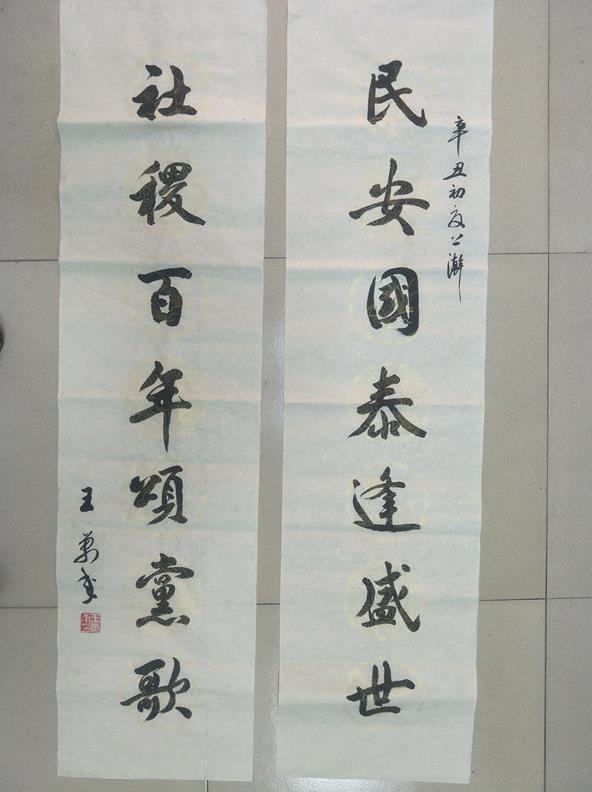 辛丑初夏
民安國泰逢盛世
社稷百年頌黨歌
王